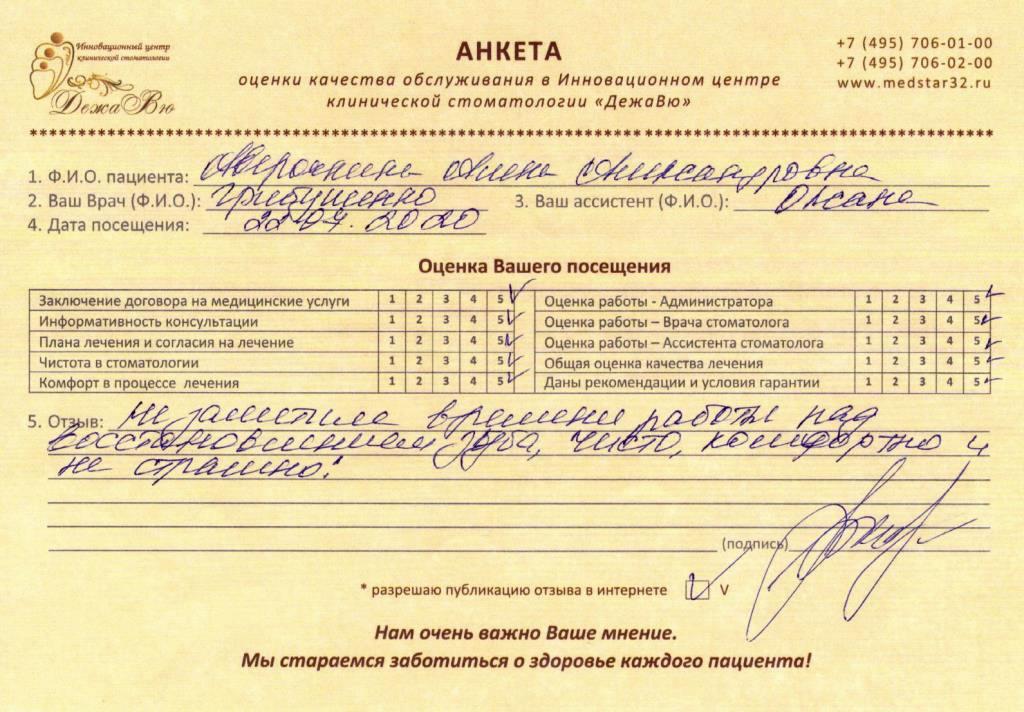 Инновационный центр
клинической стоматологии
ДежаВю
АНКЕТА
оценки качества обслуживания в Инновационном центре
клинической стоматологии «ДежаВю»
+7 (495) 706-01-00
+7 (495) 706-02-00
www.medstar32.ru
1. Ф.И.О. пациента: Александровна
2. Ваш Врач (Ф.И.О.): Грибушенко 3. Ваш ассистент (Ф.И.О.): Оксана
4. Дата посещения: 22.07.2020
Оценка Вашего посещения
Заключение договора на медицинские услуги 1 2 3 4 5 Оценка работы - Администратора 1 2 3 4 5
Информативность консультации 1 2 3 4 5 Оценка работы – Врача стоматолога 1 2 3 4 5
Плана лечения и согласия на лечение 1 2 3 4 5 Оценка работы – Ассистента стоматолога 1 2 3 4 5
Чистота в стоматологии 1 2 3 4 5 Общая оценка качества лечения 1 2 3 4 5
Комфорт в процессе лечения 1 2 3 4 5 Даны рекомендации и условия гарантии 1 2 3 4 5
5. Отзыв: Не заметила времени работы над
восстановлением зуба, чисто, комфортно и
не страшно!
(подпись)
* разрешаю публикацию отзыва в интернете V
Нам очень важно Ваше мнение.
Мы стараемся заботиться о здоровье каждого пациента!